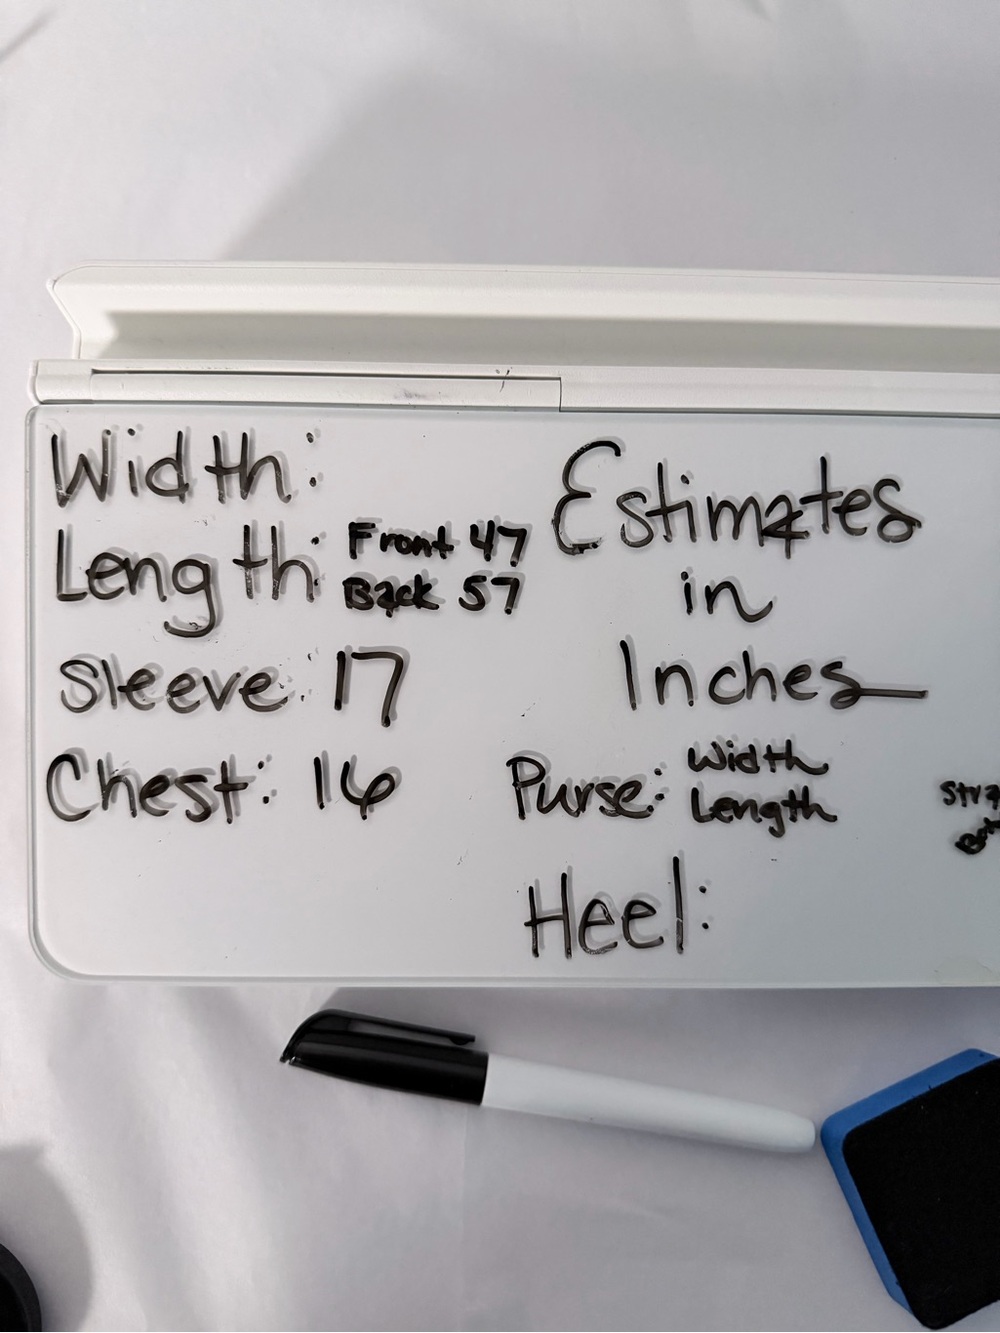 Width:
Length: Front 47
Back 57
Sleeve: 17
Chest: 16
Estimates
in
Inches
Purse: Width
Length
Heel: